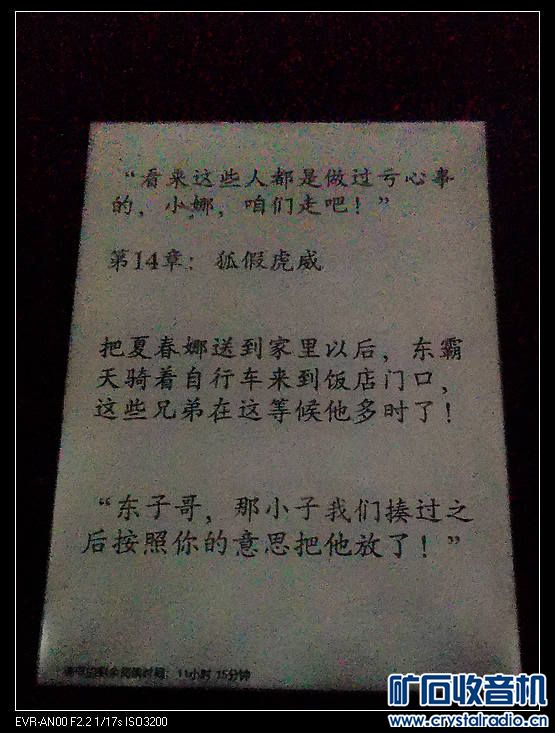 “看来这些人都是做过亏心事
的，小娜，咱们走吧！”
第14章：狐假虎威
把夏春娜送到家里以后，东霸
天骑着自行车来到饭店门口，
这些兄弟在这等候他多时了！
“东子哥，那小子我们揍过之
后按照你的意思把他放了！”
11小时 15分钟
矿石收音机
www.crystalradio.cn
EVR-AN00 F2.2 1/17s ISO3200